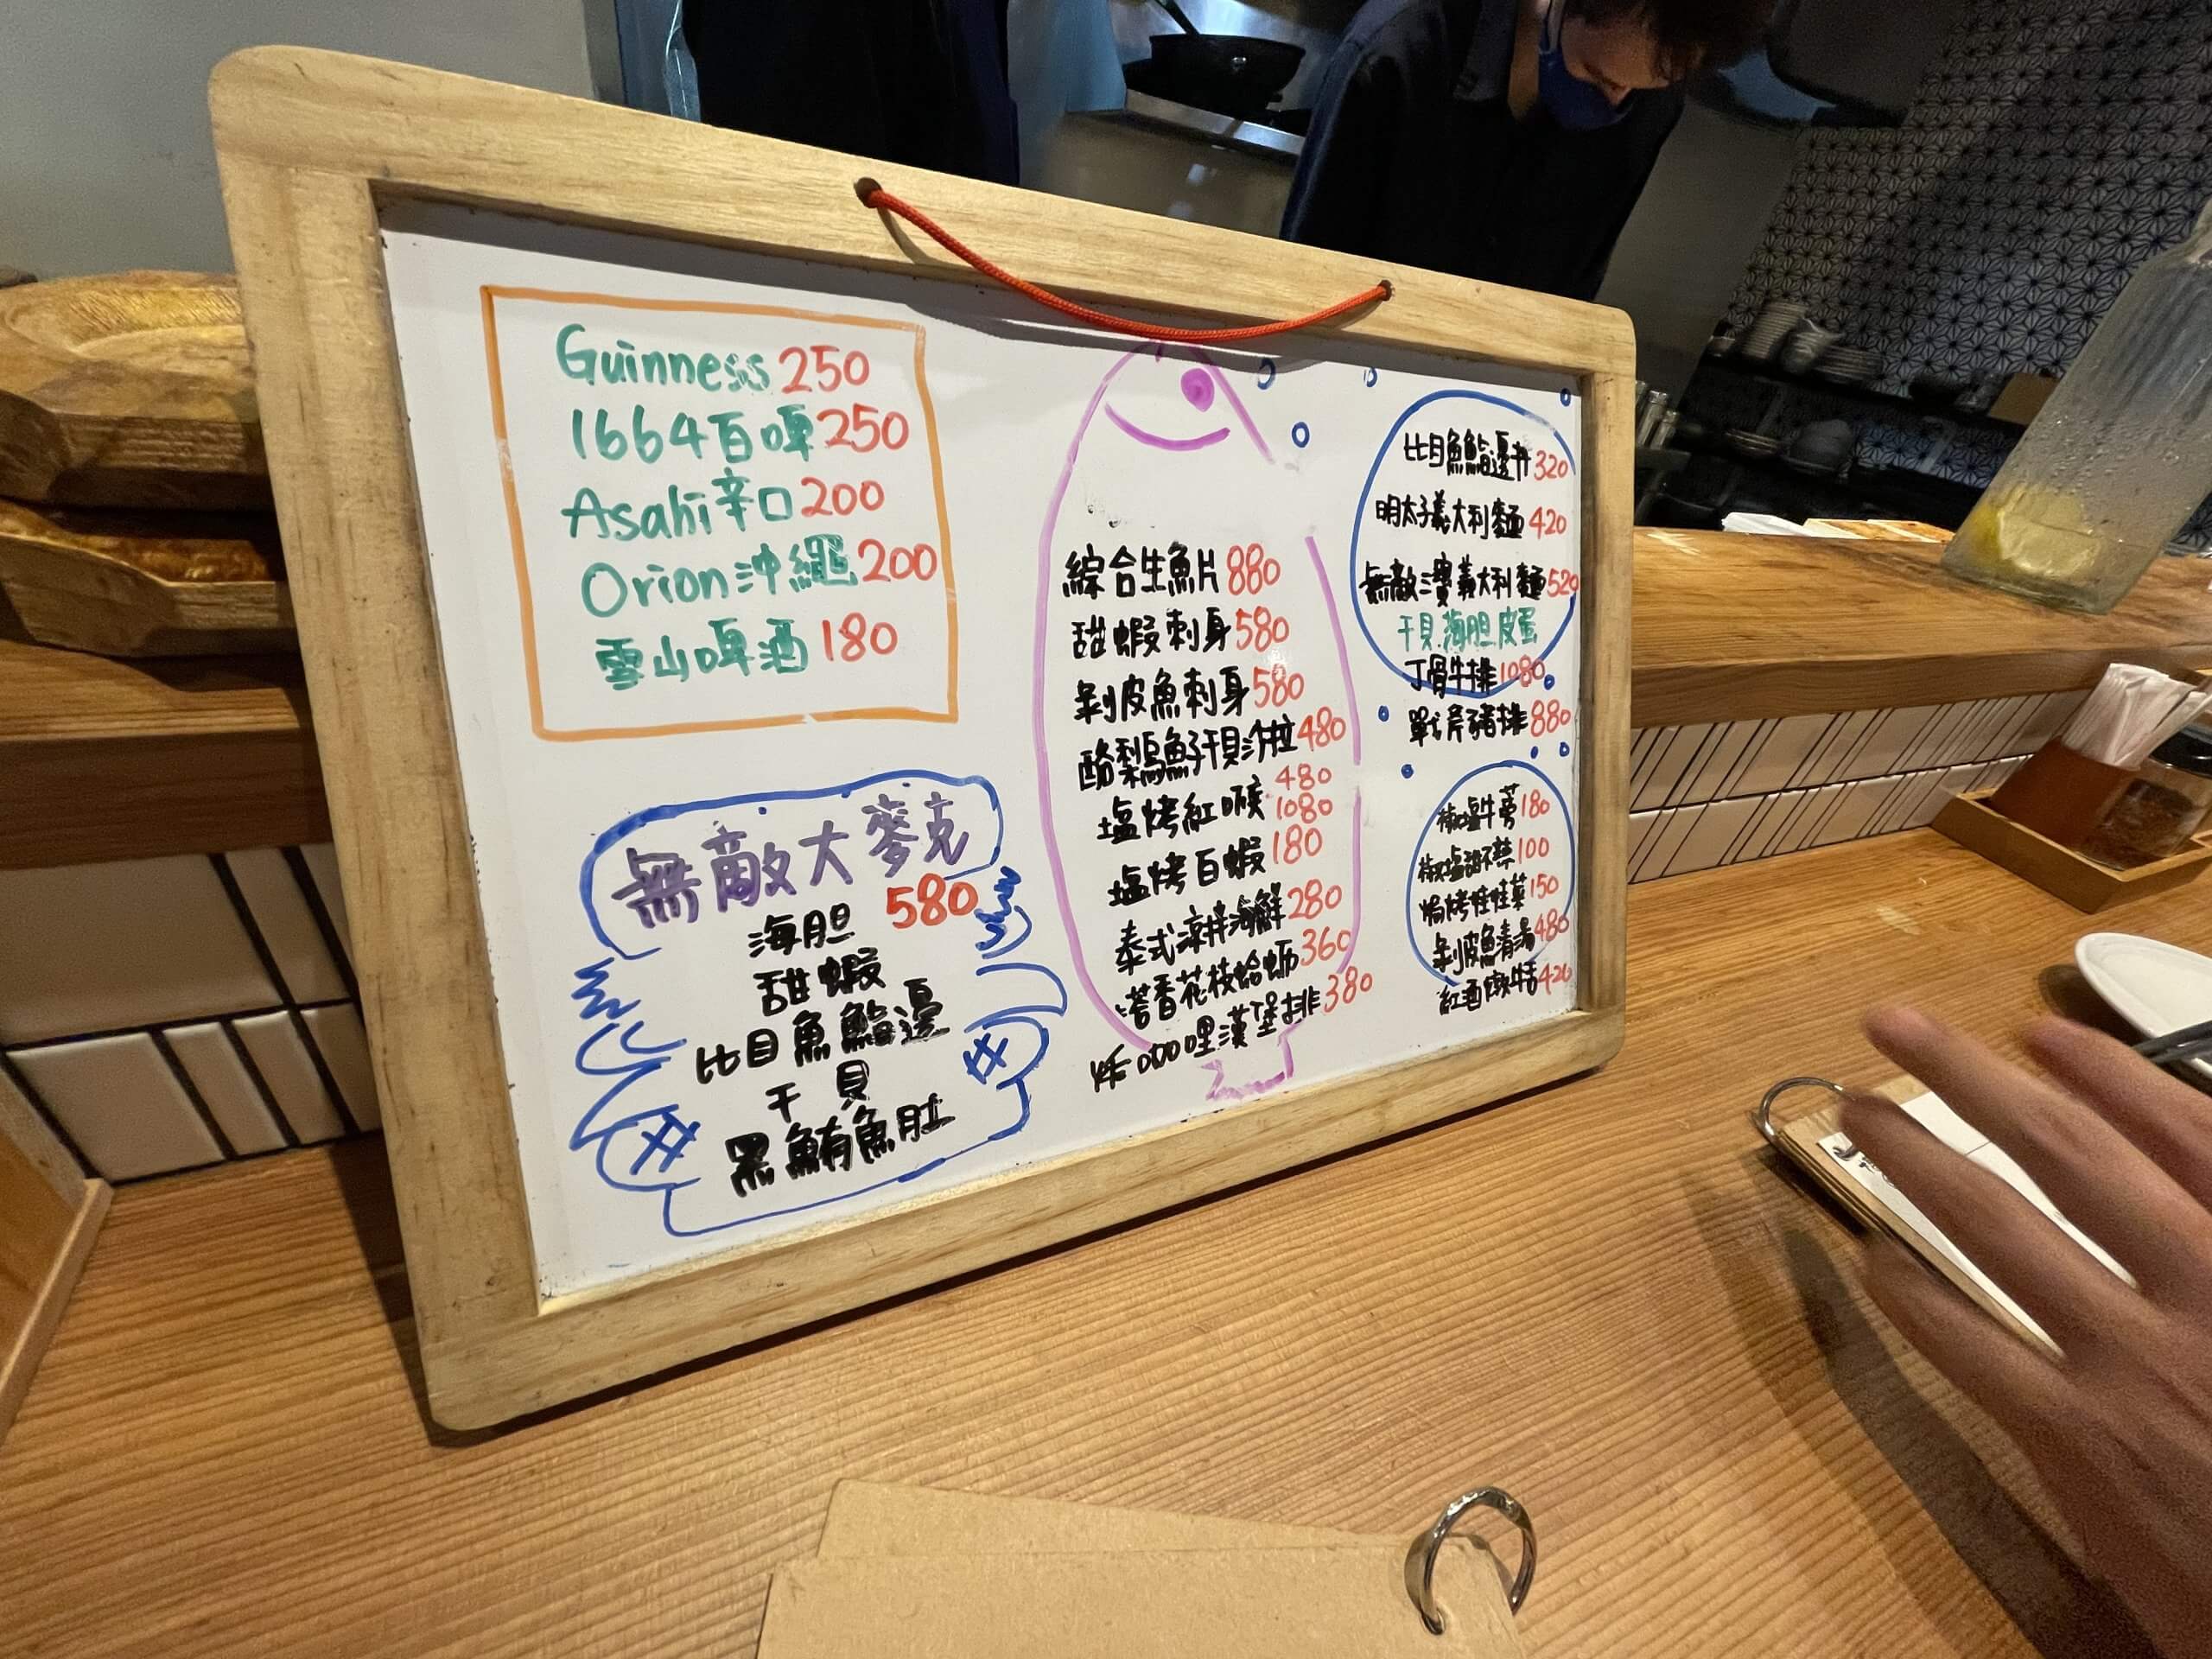 Guinness 250
1664白啤 250
Asahi 辛口 200
Orion 沖繩 200
雪山啤酒 180
無敵大麥克
580
海胆
甜蝦
比目魚鰭邊
干貝
黑鮪魚肚
綜合生魚片 880
甜蝦刺身 580
剝皮魚刺身 580
酪梨烏魚子干貝沙拉 480
塩烤紅喉 480
1080
塩烤白蝦 180
泰式涼拌海鮮 280
塔香花枝蛤蜊 360
炸咖哩漢堡排 380
比目魚鰭邊丼 320
明太子義大利麵 420
無敵三寶義大利麵 520
干貝.海胆.皮蛋
丁骨牛排 1080
戰斧豬排 880
椒塩牛蒡 180
椒塩甜不辣 100
焗烤娃娃菜 150
剝皮魚清湯 480
紅酒燉牛舌 420